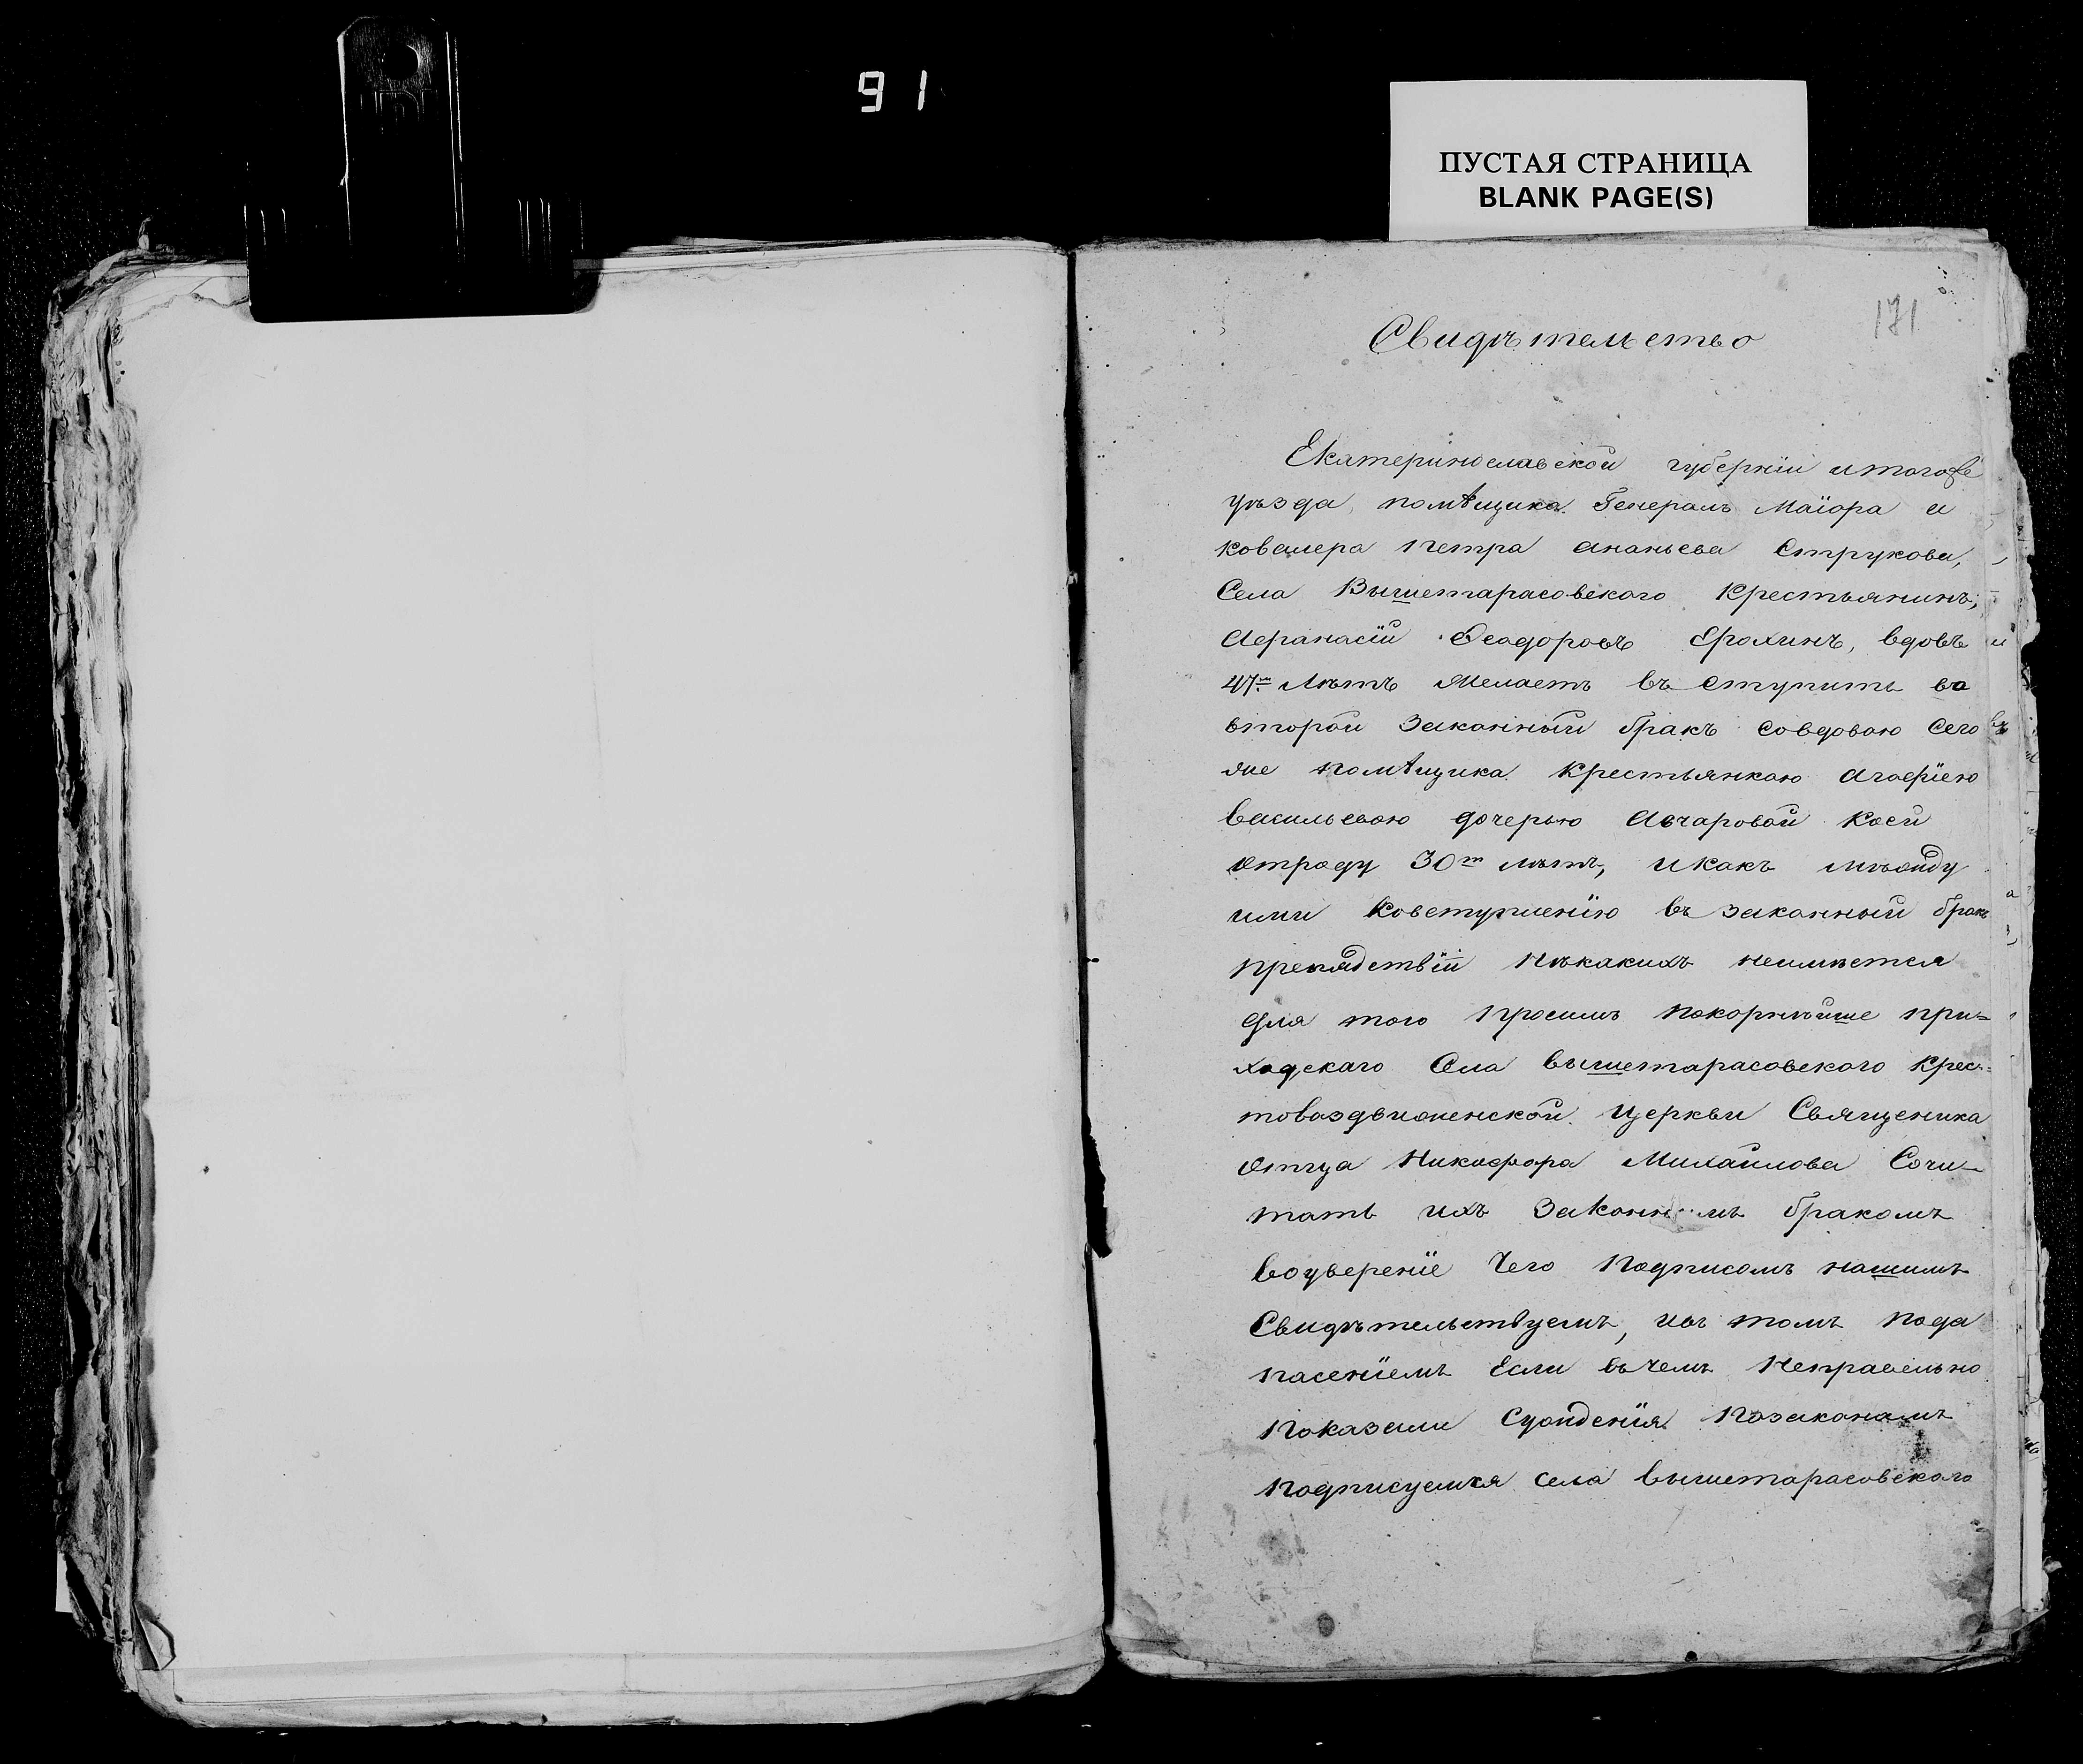 91
ПУСТАЯ СТРАНИЦА
BLANK PAGE(S)
171
Свидѣтельство
Екатеринославской губерніи итогоже
уѣзда, помѣщика Генералъ Маіора и
ковалера Петра Ананьева Струкова,
Села Вышетарасовского Крестьянинъ,
Афанасій Феодоровъ Ерохинъ, вдовъ
47.т Лѣтъ Желаетъ въ Ступить во
второй Законный бракъ совдовою Сего
же помѣщика Крестьянкою Агафіею
Васильевою дочерью Авчаровой коей
отроду 30т лѣтъ, икакъ мѣжду
ими Ковступленію въ законный бракъ
препядствій Нѣкакихъ неимѣется
для того Просимъ покорнѣйше при=
ходскаго Села Вышетарасовского Крес=
товоздвиженской Церкви Священика
Отца Никифора Михайлова Сочи-
тать ихъ Закон мъ бракомъ
Воуверение Чего Подписомъ нашимъ
Свидѣтельствуемъ, ивъ томъ пода
пасениемъ Если въчемъ Неправельно
Показали Суждения Позаконамъ
Подписуемся села Вышетарасовского